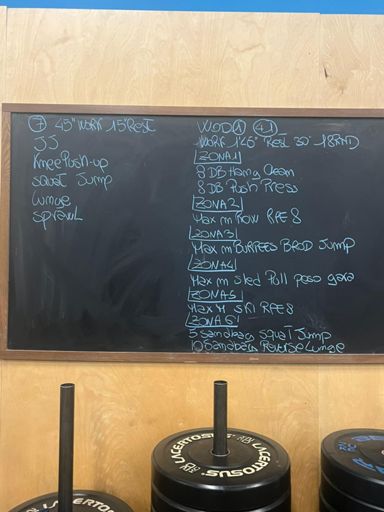 7 45" WORK 15" REST
JJ
Knee Push-up
Squat Jump
Lunge
Sprawl
WOD 1 41
WORK 1'45" Rest 30" 18RND
ZONA 1
8 DB Hang Clean
8 DB Push Press
ZONA 2
Max m Row RPE 8
ZONA 3
Max m BURPEES BROD Jump
ZONA 4
Max m Sled Pull peso gara
ZONA 5
Max m SKI RPE 8
ZONA 6
5 Sandbag Squat Jump
10 Sandbag Reverse Lunge
LACERTOSUS
LACERTOSUS
LACERTOSUS